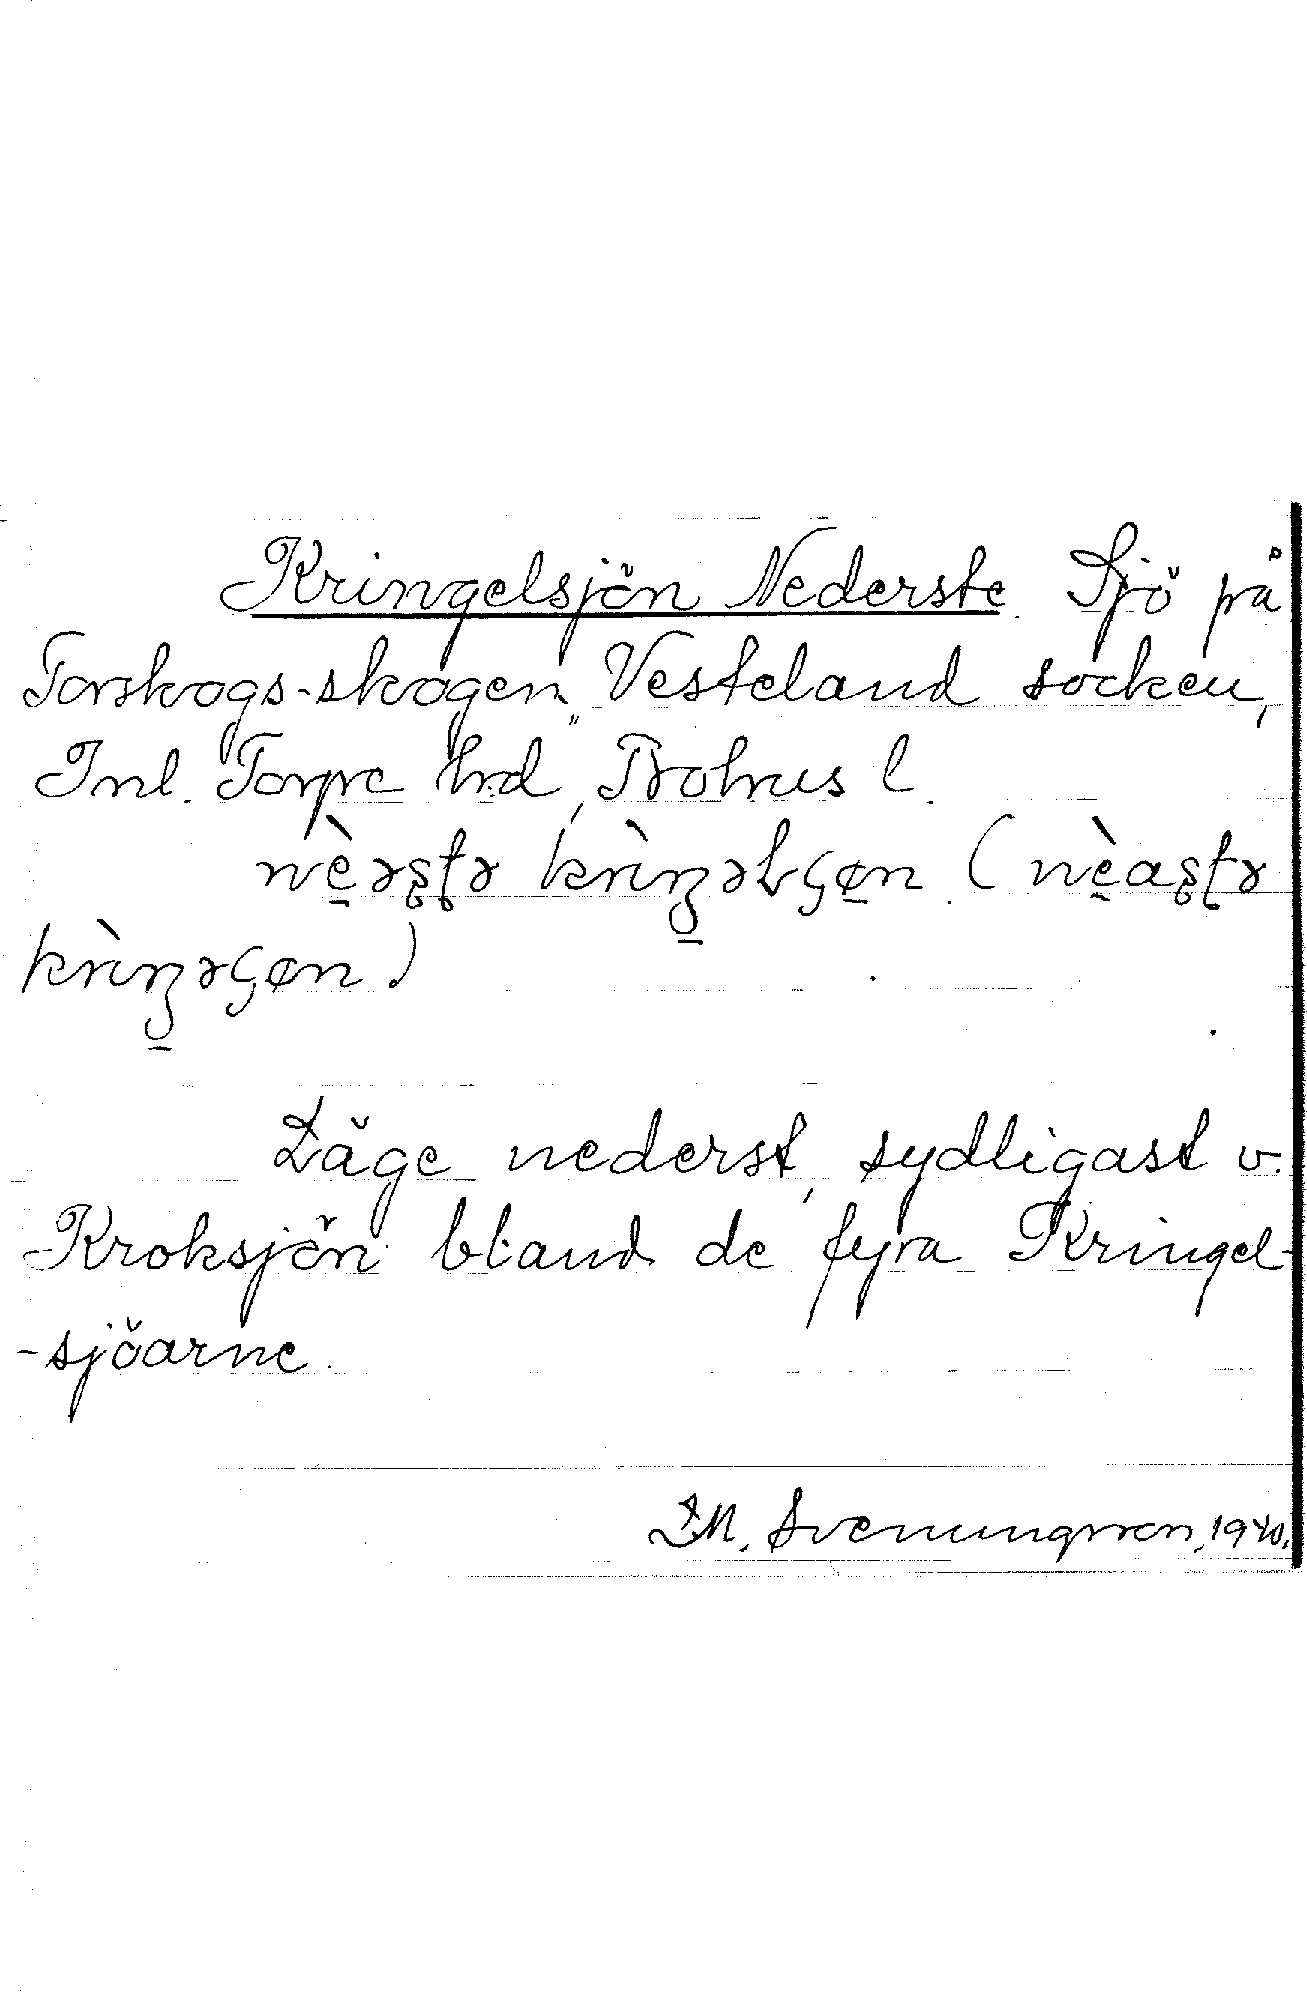 Kringelsjön Nederste. Sjö på
Torskogs-skogen, Vesteland socken,
Inl. Torpe hrd, Bohus l.
nèəs̨tə krìŋəlʂøn. (nèas̨tə
krìŋəʂøn)
Läge nederst, sydligast v.
Kroksjön bland de fyra Kringel-
-sjöarne.
LM. Svenungsson, 1940.